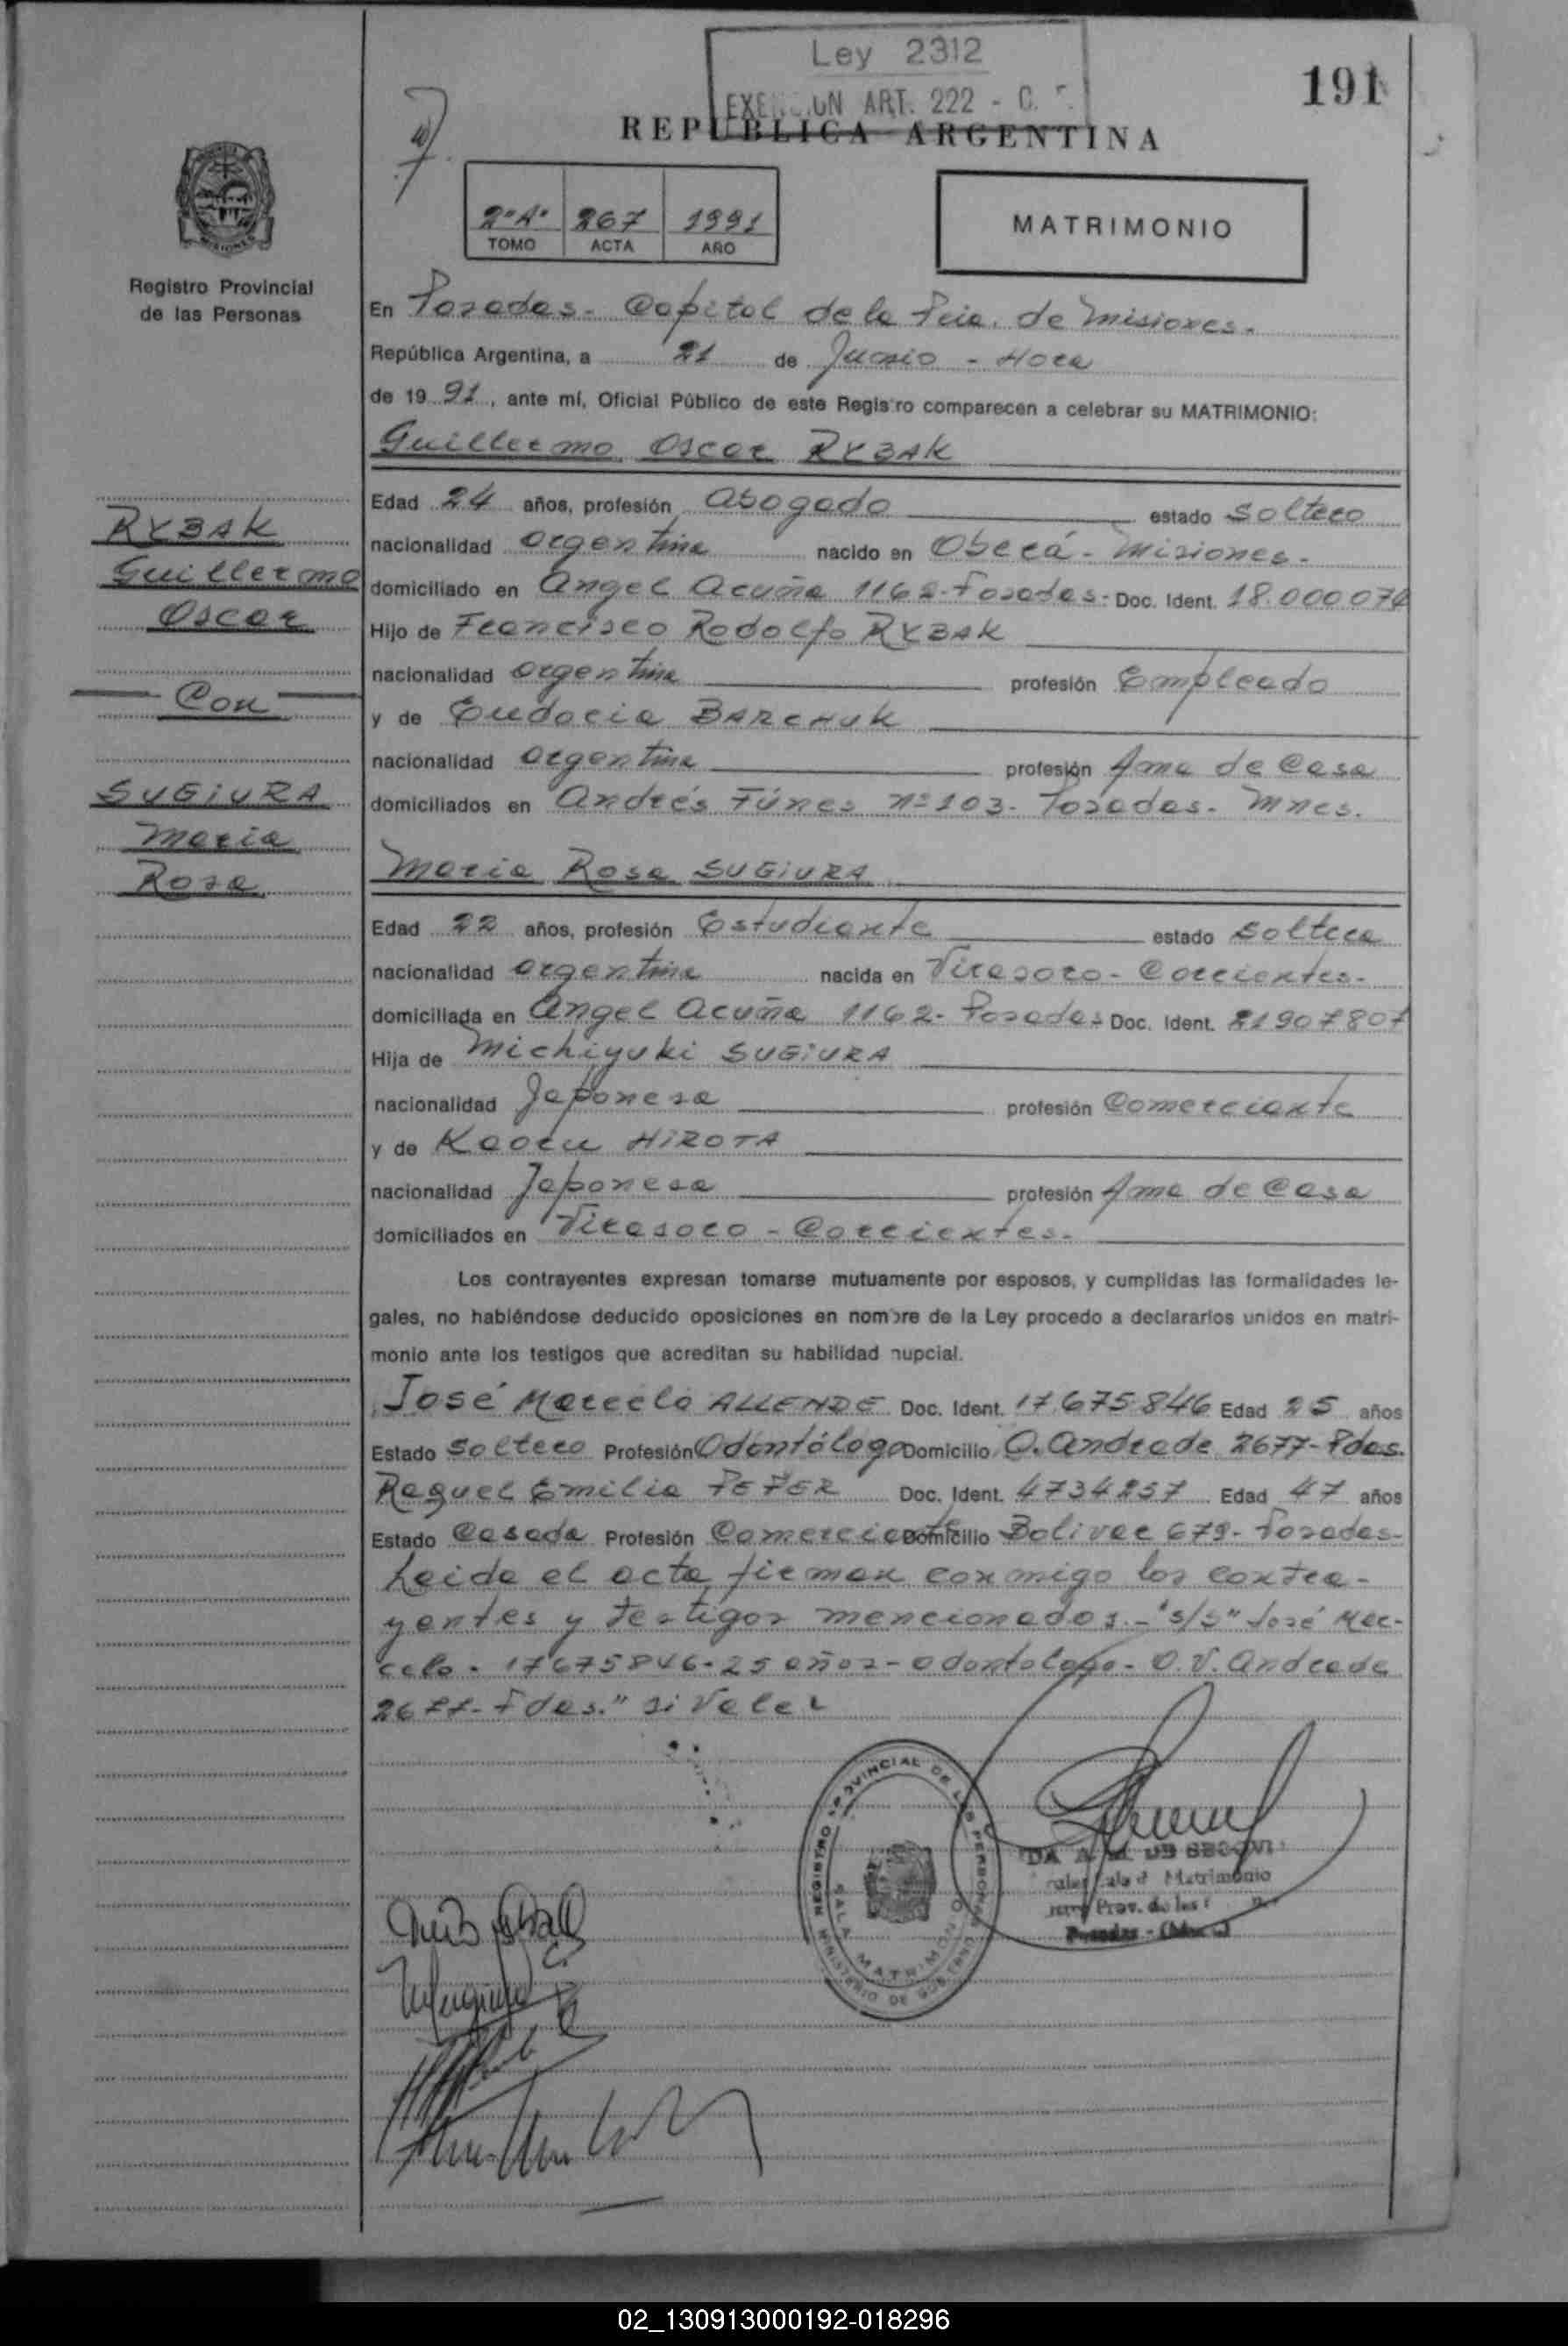 Ley 2312
ART. 222 - C.
191
REPUBLICA ARGENTINA
2º"A" 267 1991
TOMO ACTA AÑO
MATRIMONIO
MISIONES
Registro Provincial
de las Personas
En Posadas - Capital de la Pcia. de Misiones.
República Argentina, a 21 de Junio - Hora
de 1991, ante mí, Oficial Público de este Registro comparecen a celebrar su MATRIMONIO:
Guillermo Oscar RYBAK
RYBAK
Guillermo
Oscar
Con
SUGIURA
Maria
Rosa
Edad 24 años, profesión Abogado estado Soltero
nacionalidad argentina nacido en Oberá - Misiones -
domiciliado en Angel Acuña 1162 - Posadas - Doc. Ident. 18.000.074
Hijo de Francisco Rodolfo RYBAK
nacionalidad argentina profesión Empleado
y de Eudocia BARCHUK
nacionalidad argentina profesión Ama de Casa
domiciliados en Andrés Fúnes nº 103 - Posadas - Mnes.
Maria Rosa SUGIURA
Edad 22 años, profesión Estudiante estado Soltera
nacionalidad argentina nacida en Virasoro - Corrientes -
domiciliada en Angel Acuña 1162 - Posadas Doc. Ident. 21907807
Hija de Michiyuki SUGIURA
nacionalidad Japonesa profesión Comerciante
y de Kaoru HIROTA
nacionalidad Japonesa profesión Ama de Casa
domiciliados en Virasoro - Corrientes.
Los contrayentes expresan tomarse mutuamente por esposos, y cumplidas las formalidades le-
gales, no habiéndose deducido oposiciones en nombre de la Ley procedo a declararlos unidos en matri-
monio ante los testigos que acreditan su habilidad nupcial.
José Marcelo ALLENDE Doc. Ident. 17.675.846 Edad 25 años
Estado Soltero Profesión Odontólogo Domicilio O. Andrade 2677 - Pdas.
Raquel Emilia PEPER Doc. Ident. 4734257 Edad 47 años
Estado Casada Profesión Comerciante Domicilio Bolivar 679 - Posadas -
Leida el acta firman conmigo los contra-
yentes y testigos mencionados. - "s/s" José Mar-
celo - 17675846 - 25 años - odontologo - O. V. Andrade
2677 - Pdas." si Valer
REGISTRO PROVINCIAL DE LAS PERSONAS
SALA MATRIMONIO
MINISTERIO DE GOBIERNO
Matrimonio
Prov. de las
Posadas - (Mnes.)
02_130913000192-018296